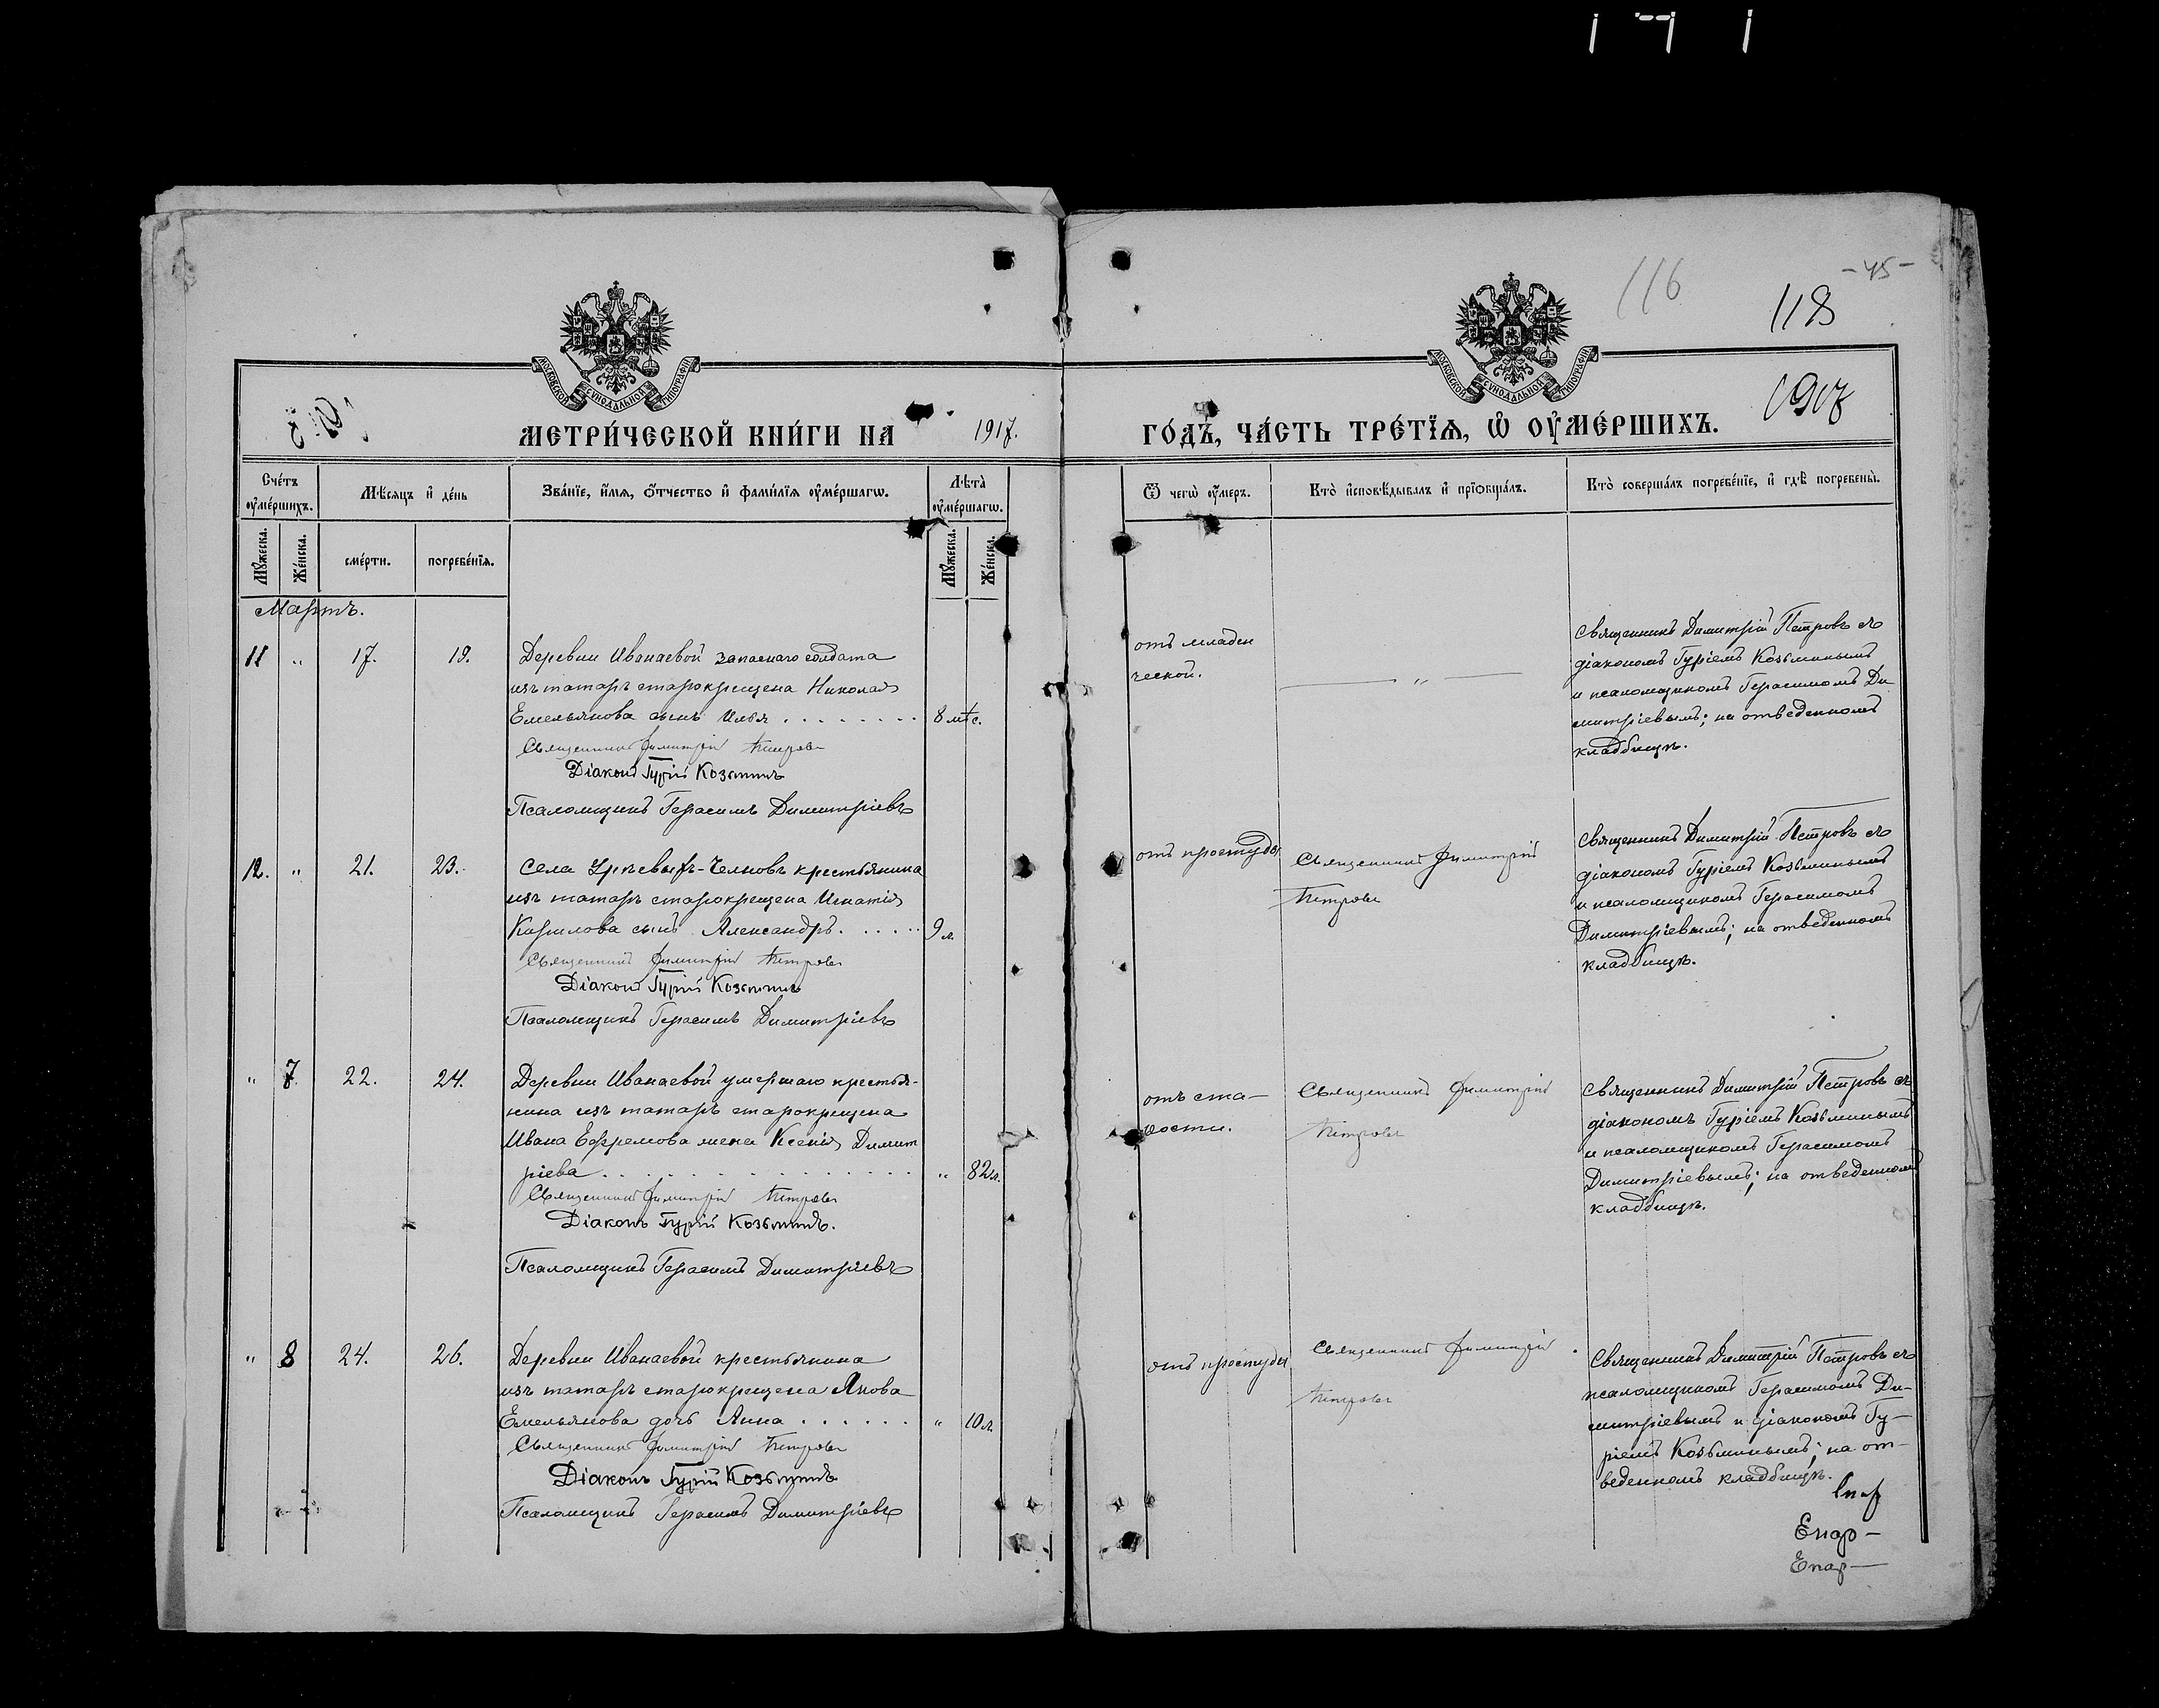 116
-45-
118
1917
МОСКОВСКОЙ СУНОДАЛЬНОЙ ТИПОГРАФІИ
МОСКОВСКОЙ СУНОДАЛЬНОЙ ТИПОГРАФІИ
МЕТРИ́ЧЕСКОЙ КНИ́ГИ НА 1917. ГО́ДЪ, ЧА́СТЬ ТРЕ́ТІЯ, Ѡ҆ ОУ҆МЕ́РШИХЪ.
Сче́тъ оу҆ме́ршихъ.
Мѣ́сяцъ и҆ де́нь
Зва́нїе, и҆́мя, ѻ҆́тчество и҆ фами́лїя оу҆ме́ршагѡ.
Лѣта̀ оу҆ме́ршагѡ.
Ѿ чегѡ̀ оу҆́меръ.
Кто̀ и҆сповѣ́дывалъ и҆ прїѡбща́лъ.
Кто̀ соверша́лъ погребе́нїе, и҆ гдѣ̀ погребены̀.
Мꙋ́жеска.
Же́нска.
сме́рти.
погребе́нїя.
Мꙋ́жеска.
Же́нска.
Мартъ.
11 " 17. 19.
Деревни Иванаевой запаснаго солдата
изъ татаръ старокрещена Николая
Емельянова сынъ Илья . . . . . . . . 8 мѣс.
Священникъ Димитрій Петровъ
Діаконъ Гурій Козьминъ
Псаломщикъ Герасимъ Димитріевъ
отъ младен
ческой.
"
Священникъ Димитрій Петровъ съ
діакономъ Гуріемъ Козьминымъ
и псаломщикомъ Герасимомъ Ди-
митріевымъ; на отведенномъ
кладбищѣ.
12. " 21. 23.
Села -Челновъ крестьянина
изъ татаръ старокрещена Игнатія
Кирилова сынъ Александръ. . . . . . 9 л.
Священникъ Димитрій Петровъ
Діаконъ Гурій Козьминъ
Псаломщикъ Герасимъ Димитріевъ
отъ простуды
Священникъ Димитрій
Петровъ
Священникъ Димитрій Петровъ съ
діакономъ Гуріемъ Козьминымъ
и псаломщикомъ Герасимомъ
Димитріевымъ; на отведенномъ
кладбищѣ.
" 7. 22. 24.
Деревни Иванаевой умершаго крестья-
нина изъ татаръ старокрещена
Ивана Ефремова жена Ксенія Димит
ріева . . . . . . . . . . . . . " 82 л.
Священникъ Димитрій Петровъ
Діаконъ Гурій Козьминъ.
Псаломщикъ Герасимъ Димитріевъ
отъ ста-
рости.
Священникъ Димитрій
Петровъ
Священникъ Димитрій Петровъ съ
діакономъ Гуріемъ Козьминымъ
и псаломщикомъ Герасимомъ
Димитріевымъ; на отведенномъ
кладбищѣ.
" 8 24. 26.
Деревни Иванаевой крестьянина
изъ татаръ старокрещена Якова
Емельянова дочь Анна . . . . . . " 10 л.
Священникъ Димитрій Петровъ
Діаконъ Гурій Козьминъ
Псаломщикъ Герасимъ Димитріевъ
отъ простуды
Священникъ Димитрій
Петровъ
Священникъ Димитрій Петровъ съ
псаломщикомъ Герасимомъ Ди-
митріевымъ и діакономъ Гу-
ріемъ Козьминымъ; на от-
веденномъ кладбищѣ.
Епар-
Епар-